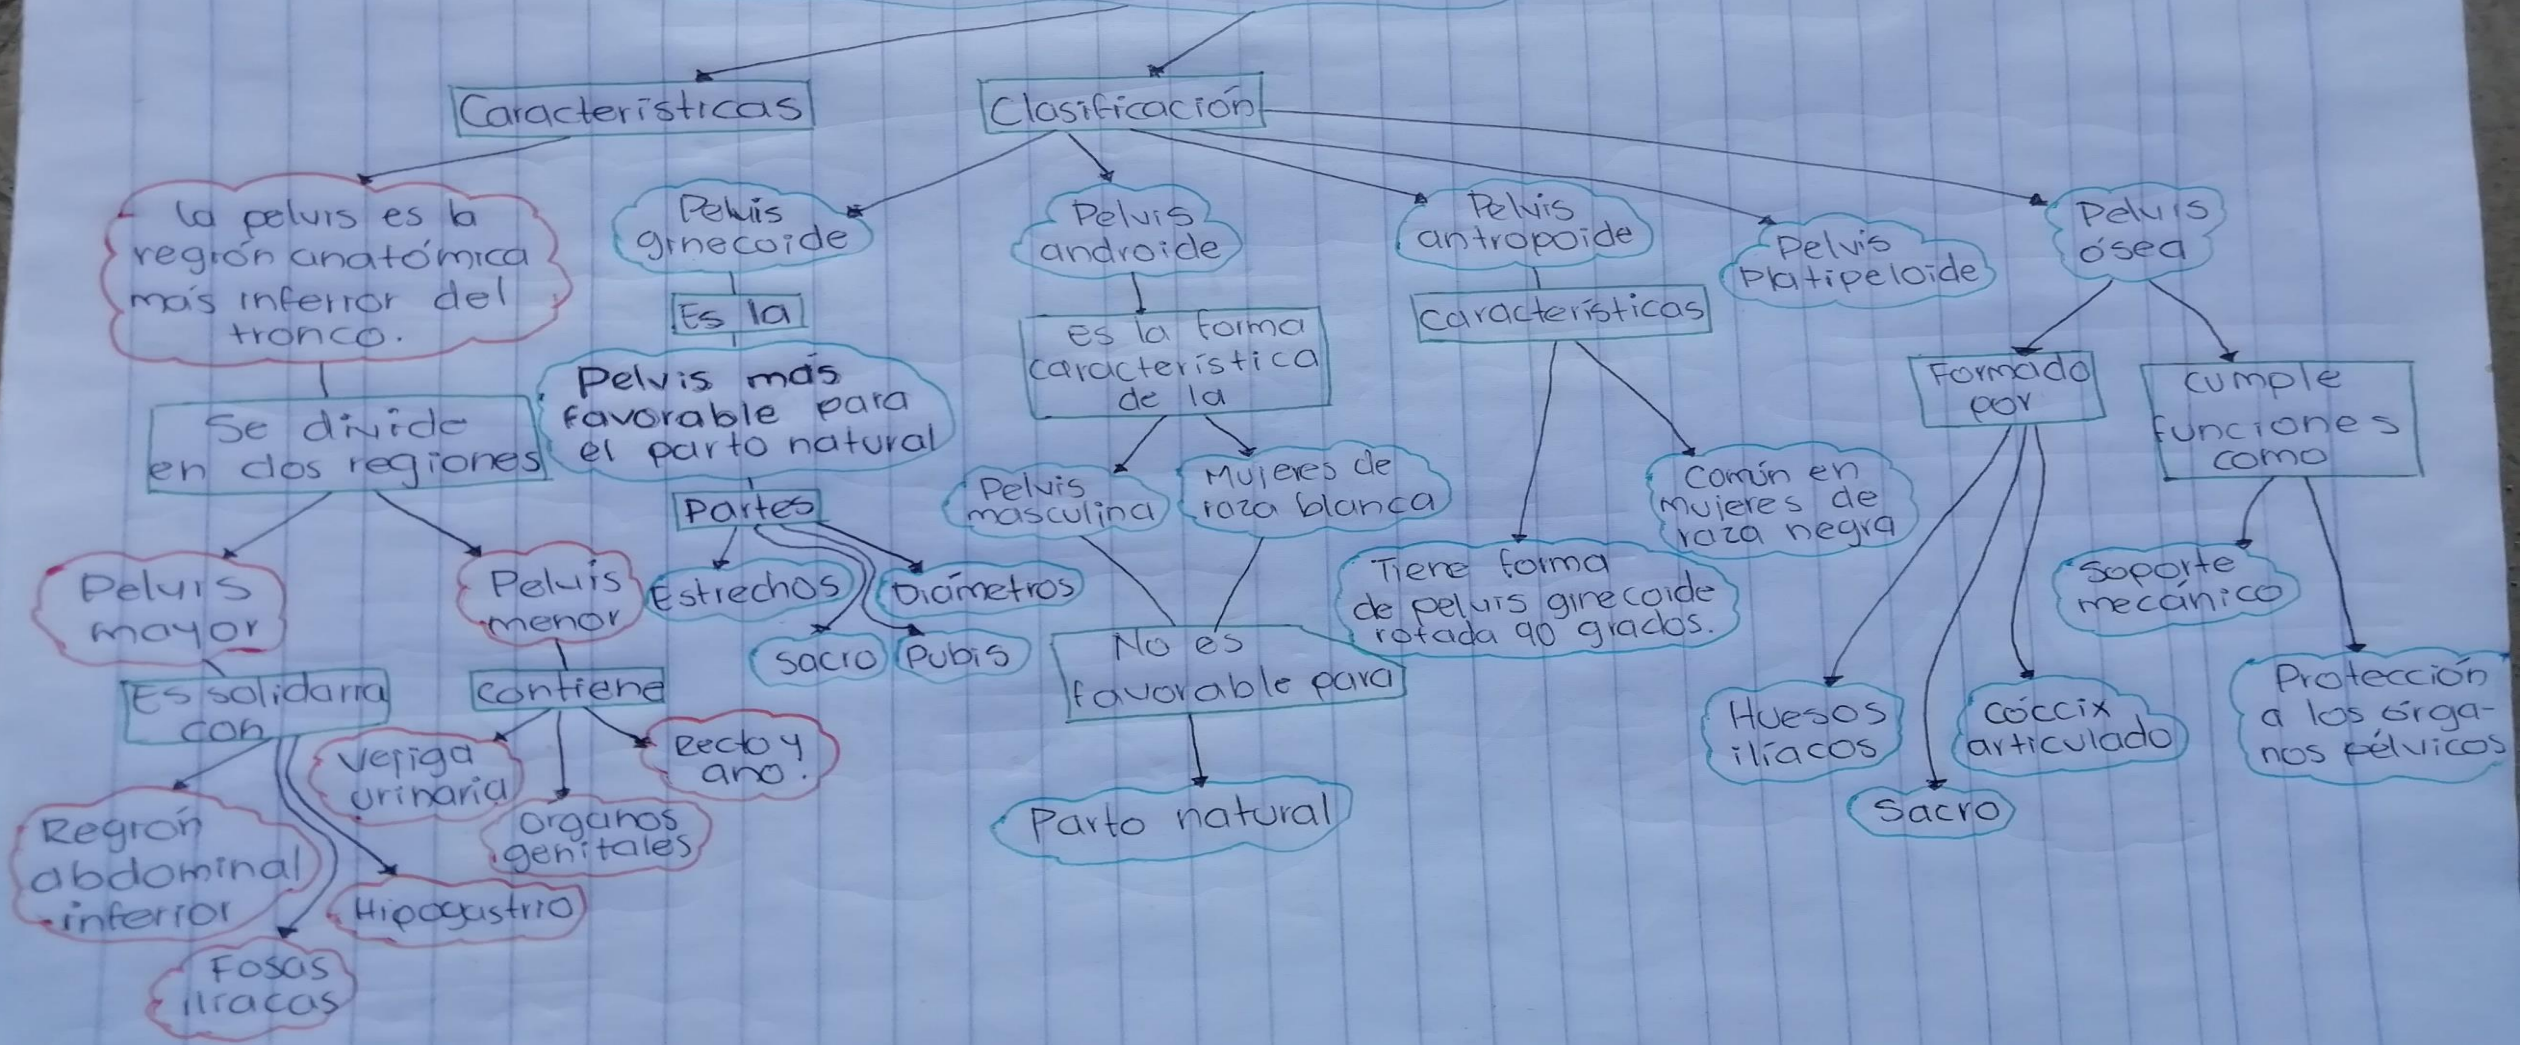 Características
Clasificación
la pelvis es la
región anatómica
más inferior del
tronco.
Se divide
en dos regiones
Pelvis
mayor
Es solidaria
con
Región
abdominal
inferior
Fosas
ilíacas
Hipogastrio
Pelvis
menor
contiene
Vejiga
urinaria
organos
genitales
Recto y
ano.
Pelvis
ginecoide
Es la
Pelvis más
favorable para
el parto natural
Partes
Estrechos
Sacro
Pubis
Diámetros
Pelvis
androide
es la forma
característica
de la
Pelvis
masculina
Mujeres de
raza blanca
No es
favorable para
Parto natural
Pelvis
antropoide
características
Tiene forma
de pelvis ginecoide
rotada 90 grados.
Común en
mujeres de
raza negra
Pelvis
Platipeloide
Pelvis
ósea
Formado
por
Huesos
ilíacos
Sacro
cóccix
articulado
cumple
funciones
como
Soporte
mecánico
Protección
a los órga-
nos pélvicos